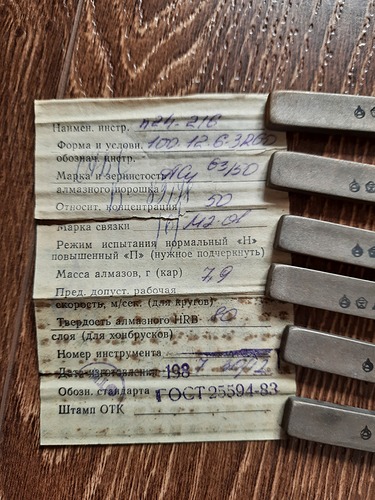 Наимен. инстр.
Форма и условн. 100.12.6.3
обознач. инстр.
Марка и зернистость 63/50
алмазного порошка
Относит. концентрация 50
Марка связки М2-01
Режим испытания нормальный «Н»
повышенный «П» (нужное подчеркнуть)
Масса алмазов, г (кар) 7,9
Пред. допуст. рабочая
скорость, м/сек. (для кругов)
Твердость алмазного HRB 80
слоя (для хонбрусков)
Номер инструмента
Дата изготовления 198
Обозн. стандарта ГОСТ 25594-83
Штамп ОТК